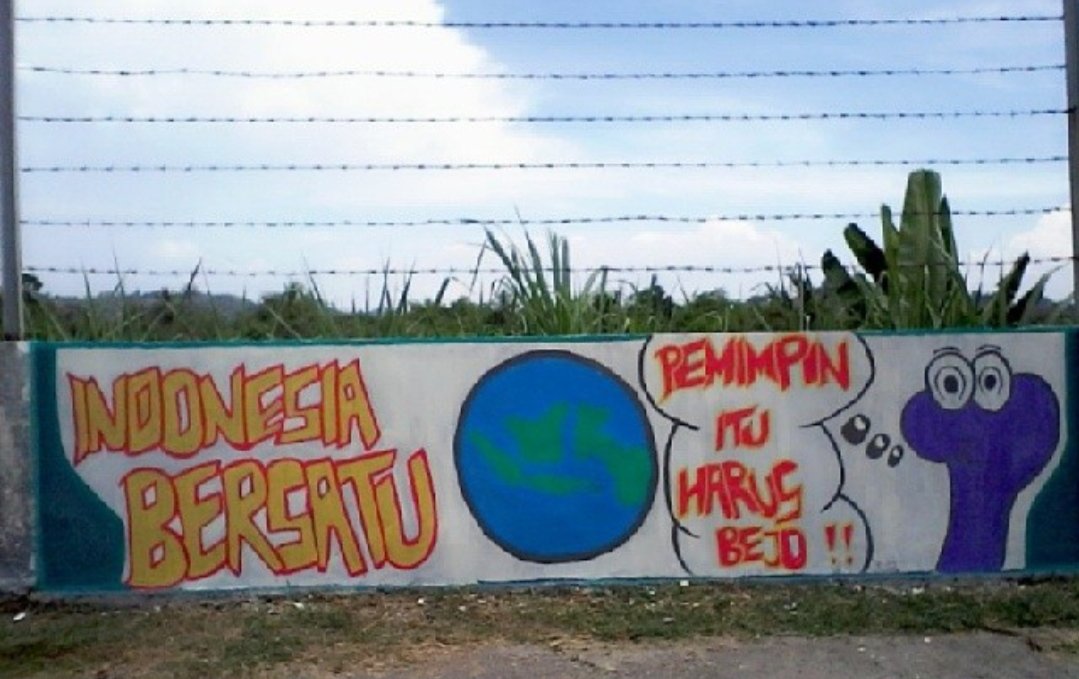 INDONESIA
BERSATU
PEMIMPIN
ITU
HARUS
BEJO !!